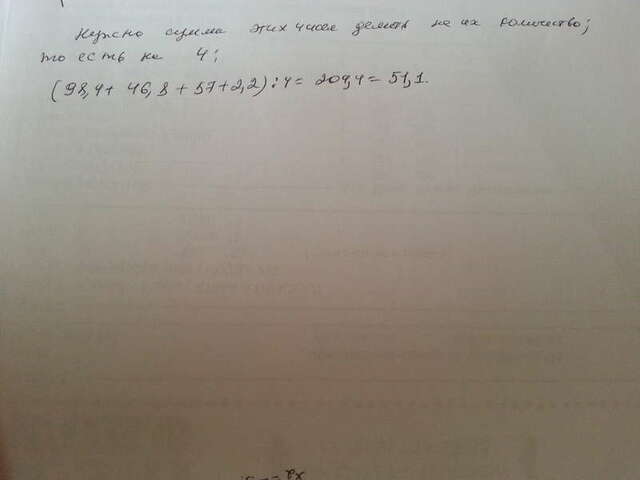 Нужно сумма этих чисел делить на их количество;
то есть на 4;
(98,4+ 46,8 + 57+2,2) : 4 = 204,4 = 51,1.